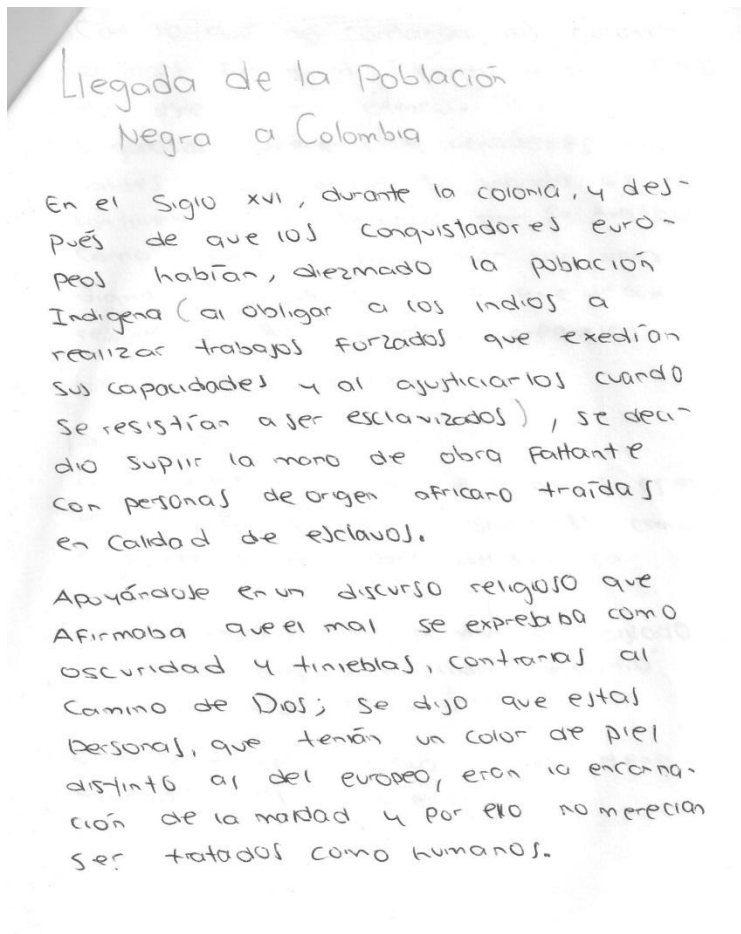 Llegada de la Población
Negra a Colombia
En el Siglo XVI, durante la colonia, y des-
pués de que los conquistadores euro-
peos habían, diezmado la población
Indígena (al obligar a los indios a
realizar trabajos forzados que exedían
sus capacidades y al ajusticiarlos cuando
se resistían a ser esclavizados), se deci-
dio suplir la mano de obra faltante
con personas de origen africano traídas
en calidad de esclavos.
Apoyándose en un discurso religioso que
Afirmaba que el mal se expresaba como
oscuridad y tinieblas, contrarias al
Camino de Dios; se dijo que estas
personas, que tenían un color de piel
distinto al del europeo, eran la encarna-
ción de la maldad y por ello no merecían
ser tratados como humanos.